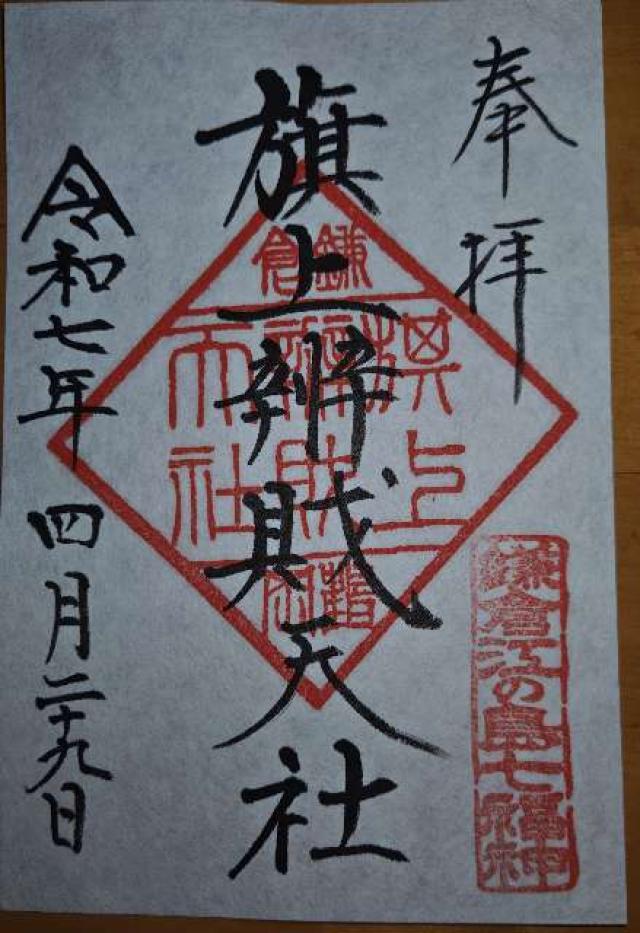 奉拝
鎌倉江の島七福神
旗上辨財天社
鎌倉
旗上
辨財
天社
令和七年 四月二十九日